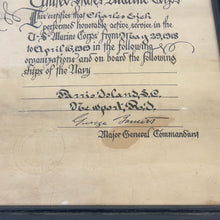 United States Marine Corps
This certifies that Charles Eick
performed honorable active service in the
U.S. Marine Corps from May 29, 1918
to April 12, 1919 in the following
organizations and on board the following
ships of the Navy
Paris Island, S.C.
Newport, R.I.
George Barnett
Major General Commandant